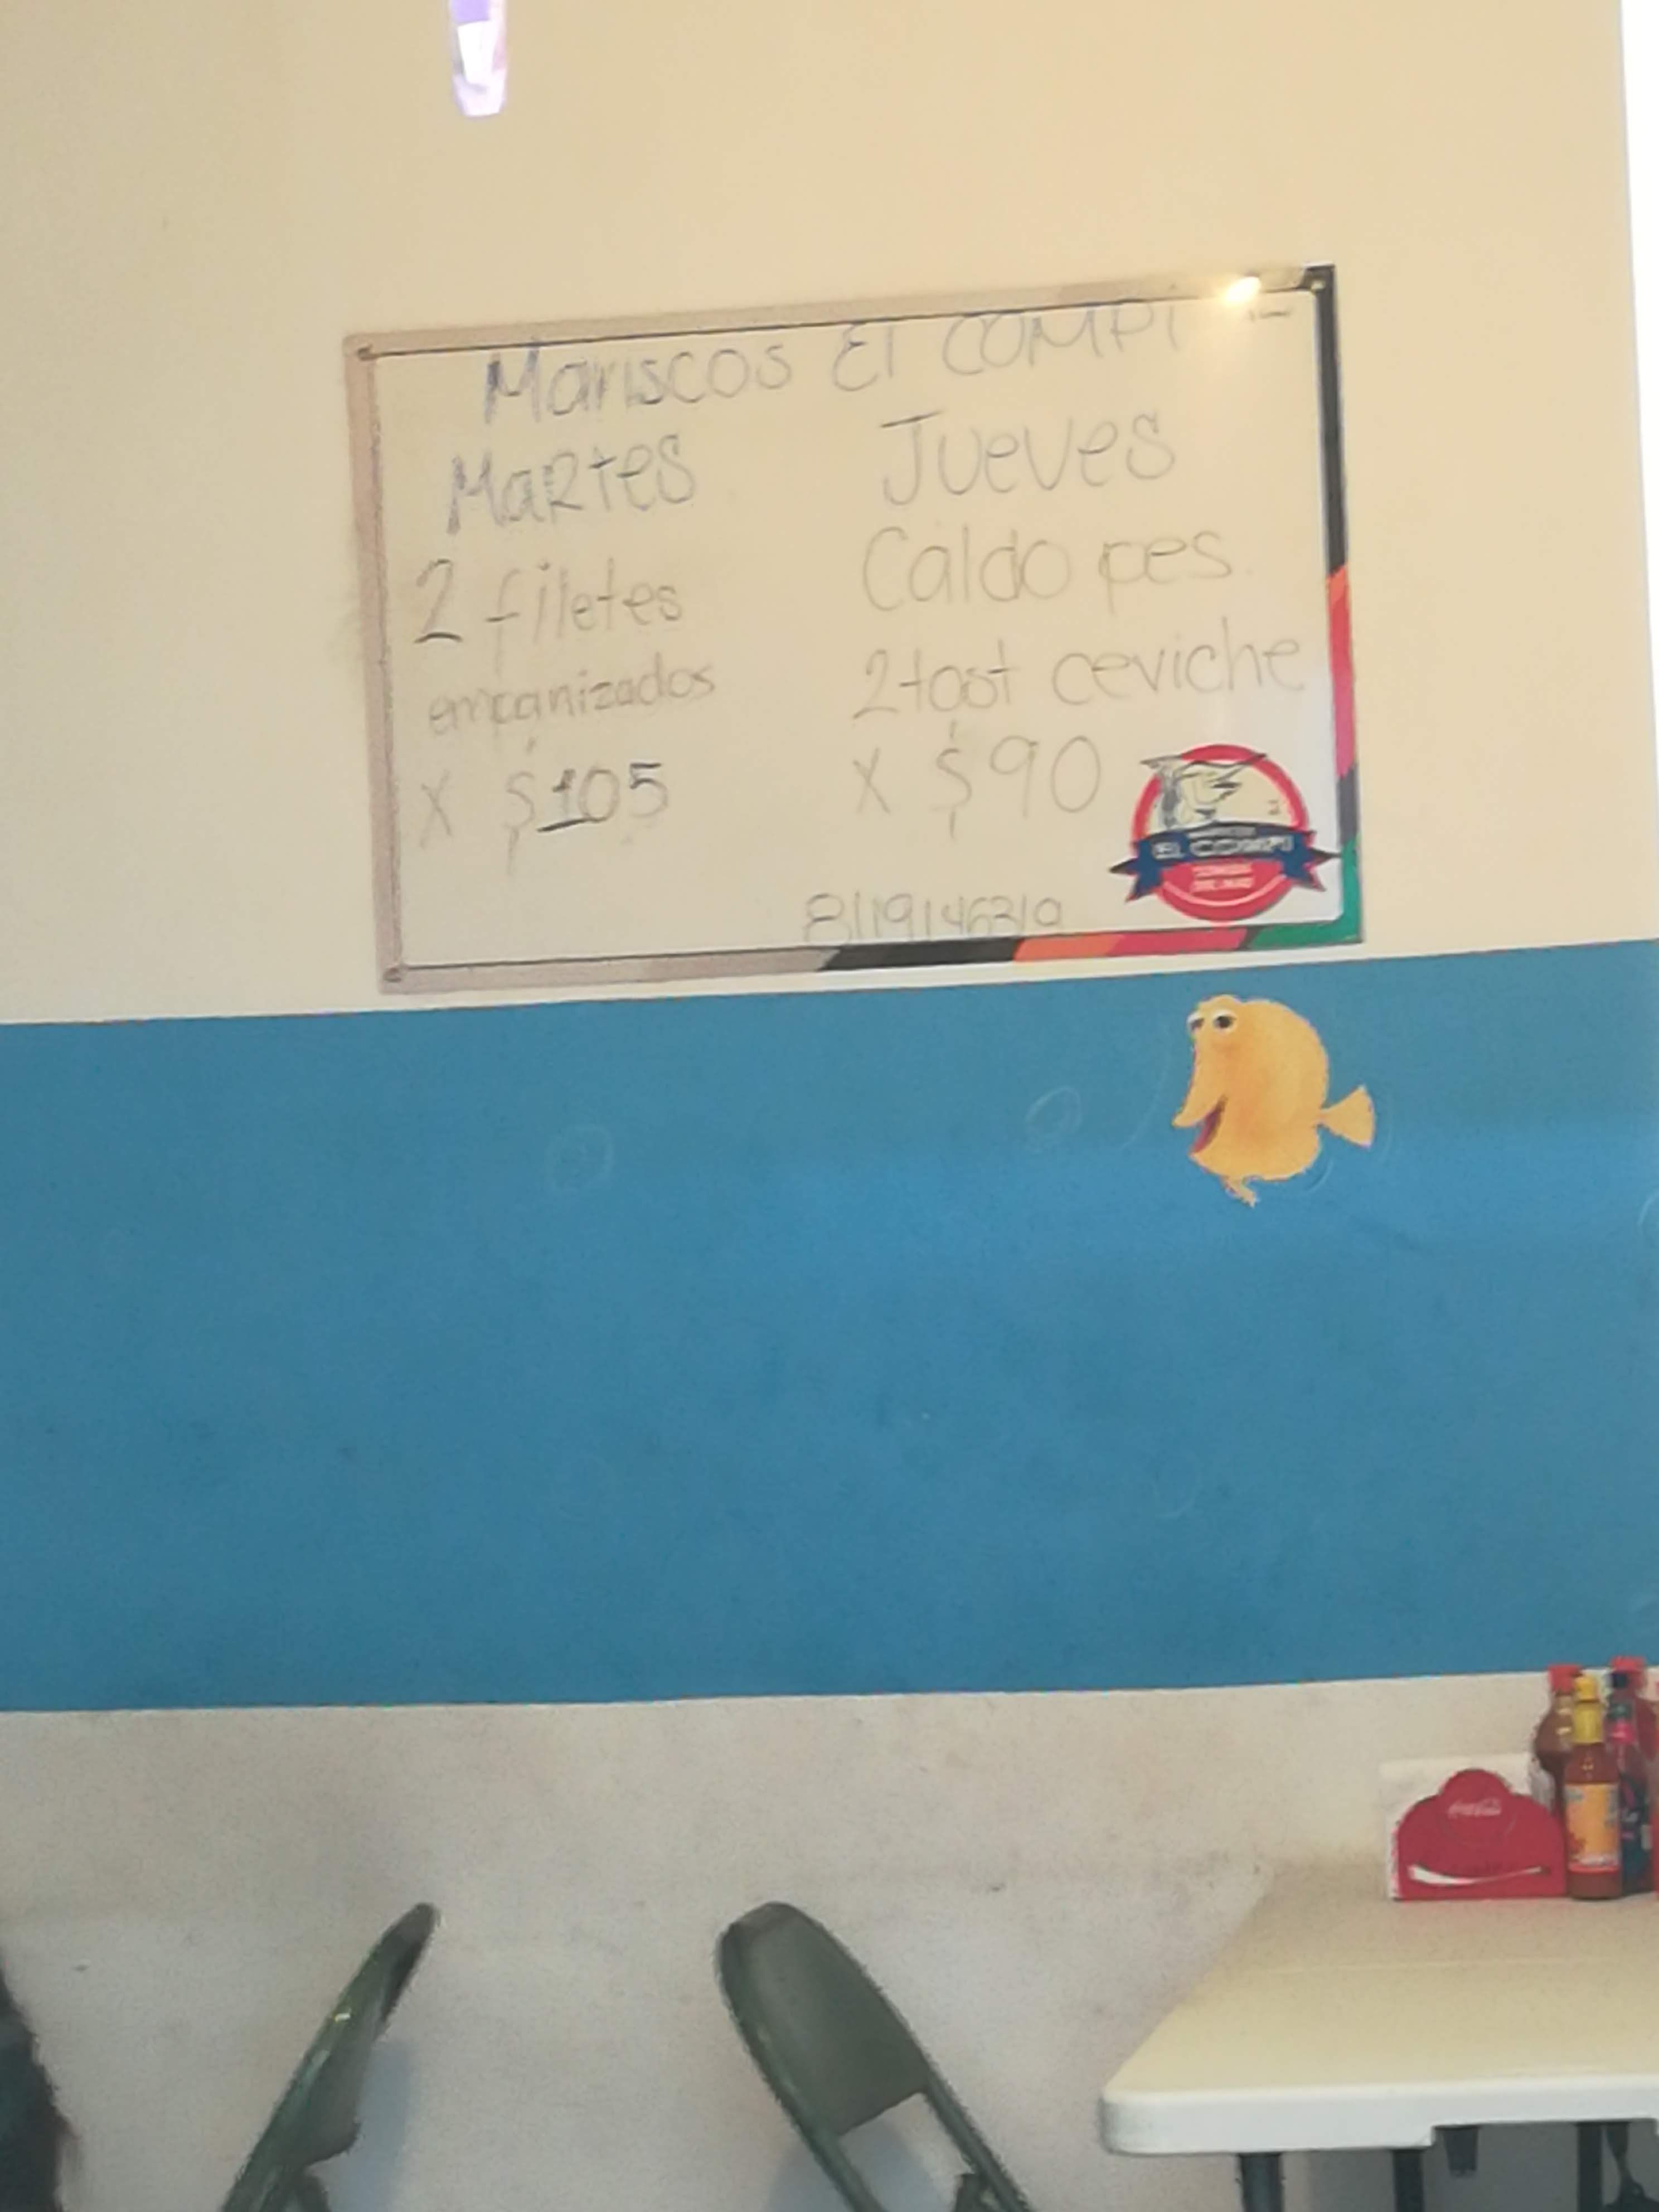 Mariscos El COMPI
Martes
2 filetes
empanizados
X $105
Jueves
Caldo pes
2 tost ceviche
X $90
8119146310
EL COMPI
Coca-Cola